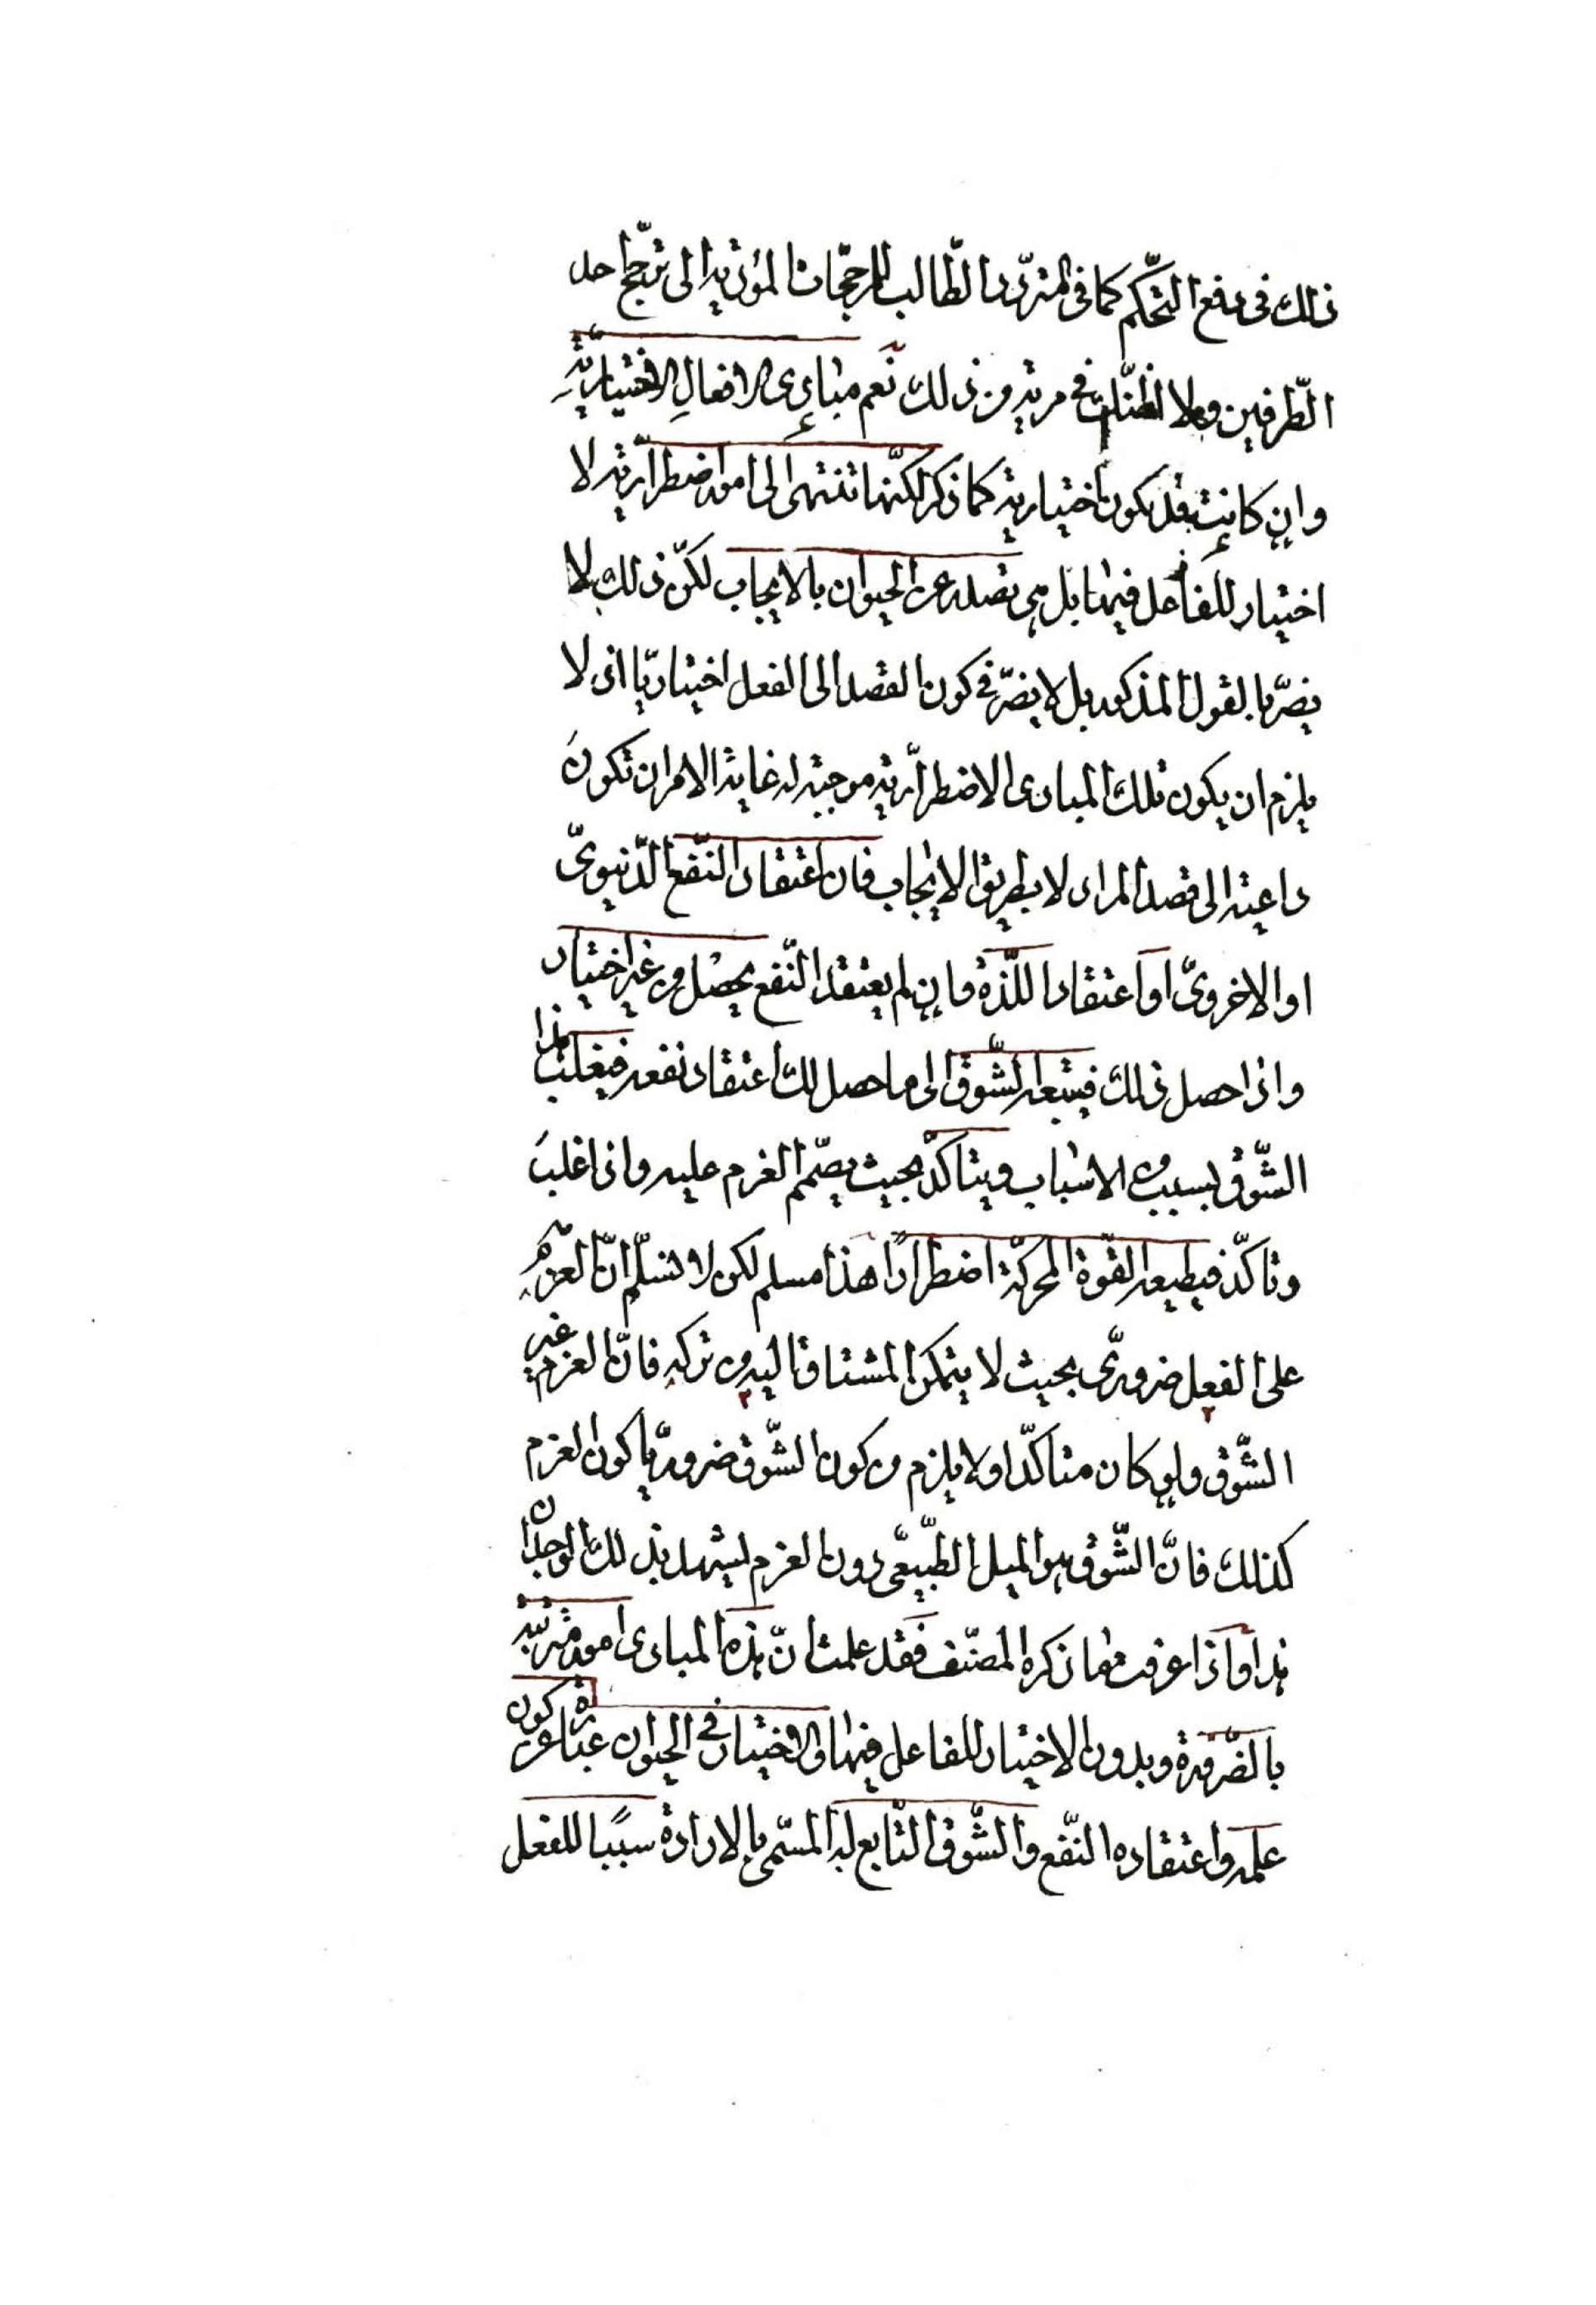 ذلك فى دفع التحكّم كما فى المتردّد الطّالب للمرجّحات المؤدّية الى ترجّح احد
الطّرفين ولا اظنّك فى مرية من ذلك نَعم مبادى الافعالِ الاختياريّةِ
وان كانت قد تكون اختيارية كما ذكر لكنّها تنتهى الى امور اضطراريّة لا
اختيار للفاعل فيها بل هى تصدر عن الحيوان بالايجاب لكنّ ذلك لا
يضرّ بالقول المذكور بل لا يضرّ فى كون القصد الى الفعل اختياريّا اذ لا
يلزم ان يكون تلك المبادى الاضطراريّة موجبة له غاية الامر ان تكونَ
داعية الى قصد المراد لا بطريق الايجاب فان اعتقاد النّفع الدّنيوىّ
او الاخروىّ او اعتقاد اللّذة وان لم يعتقد النّفع يحصل من غير اختيار
واذا حصل ذلك فيتبعه الشّوق الى ما حصل لك اعتقاد نفعه فيغلب هذا
الشّوق بسبب من الاسباب ويتاكّد بحيث يصمّم العزم عليه واذا غلبَ
وتاكّد فيطيعه القوّة المحركّة اضطرارًا هذا مسلم لكن لا نسلّم انّ العزم
على الفعل ضرورىّ بحيث لا يتمكن المشتاق اليه من تركه فانّ العزم غير
الشّوق ولو كان متاكّدا ولا يلزم من كون الشّوق ضروريّا كون العزم
كذلك فانّ الشّوق هو الميل الطّبيعىّ دون العزم ليشهد بذلك الوجدان
هذا واذا عرفت ما ذكره المصنّف فَقد علمت انّ هذه المبادى امور مترتبة
بالضّرورة وبدون الاختيار للفاعل فيها والاختيار فى الحيوان عبارة عن كون
علمه واعتقاده النّفع والشّوق التّابع له المسمّى بالارادة سببًا للفعل